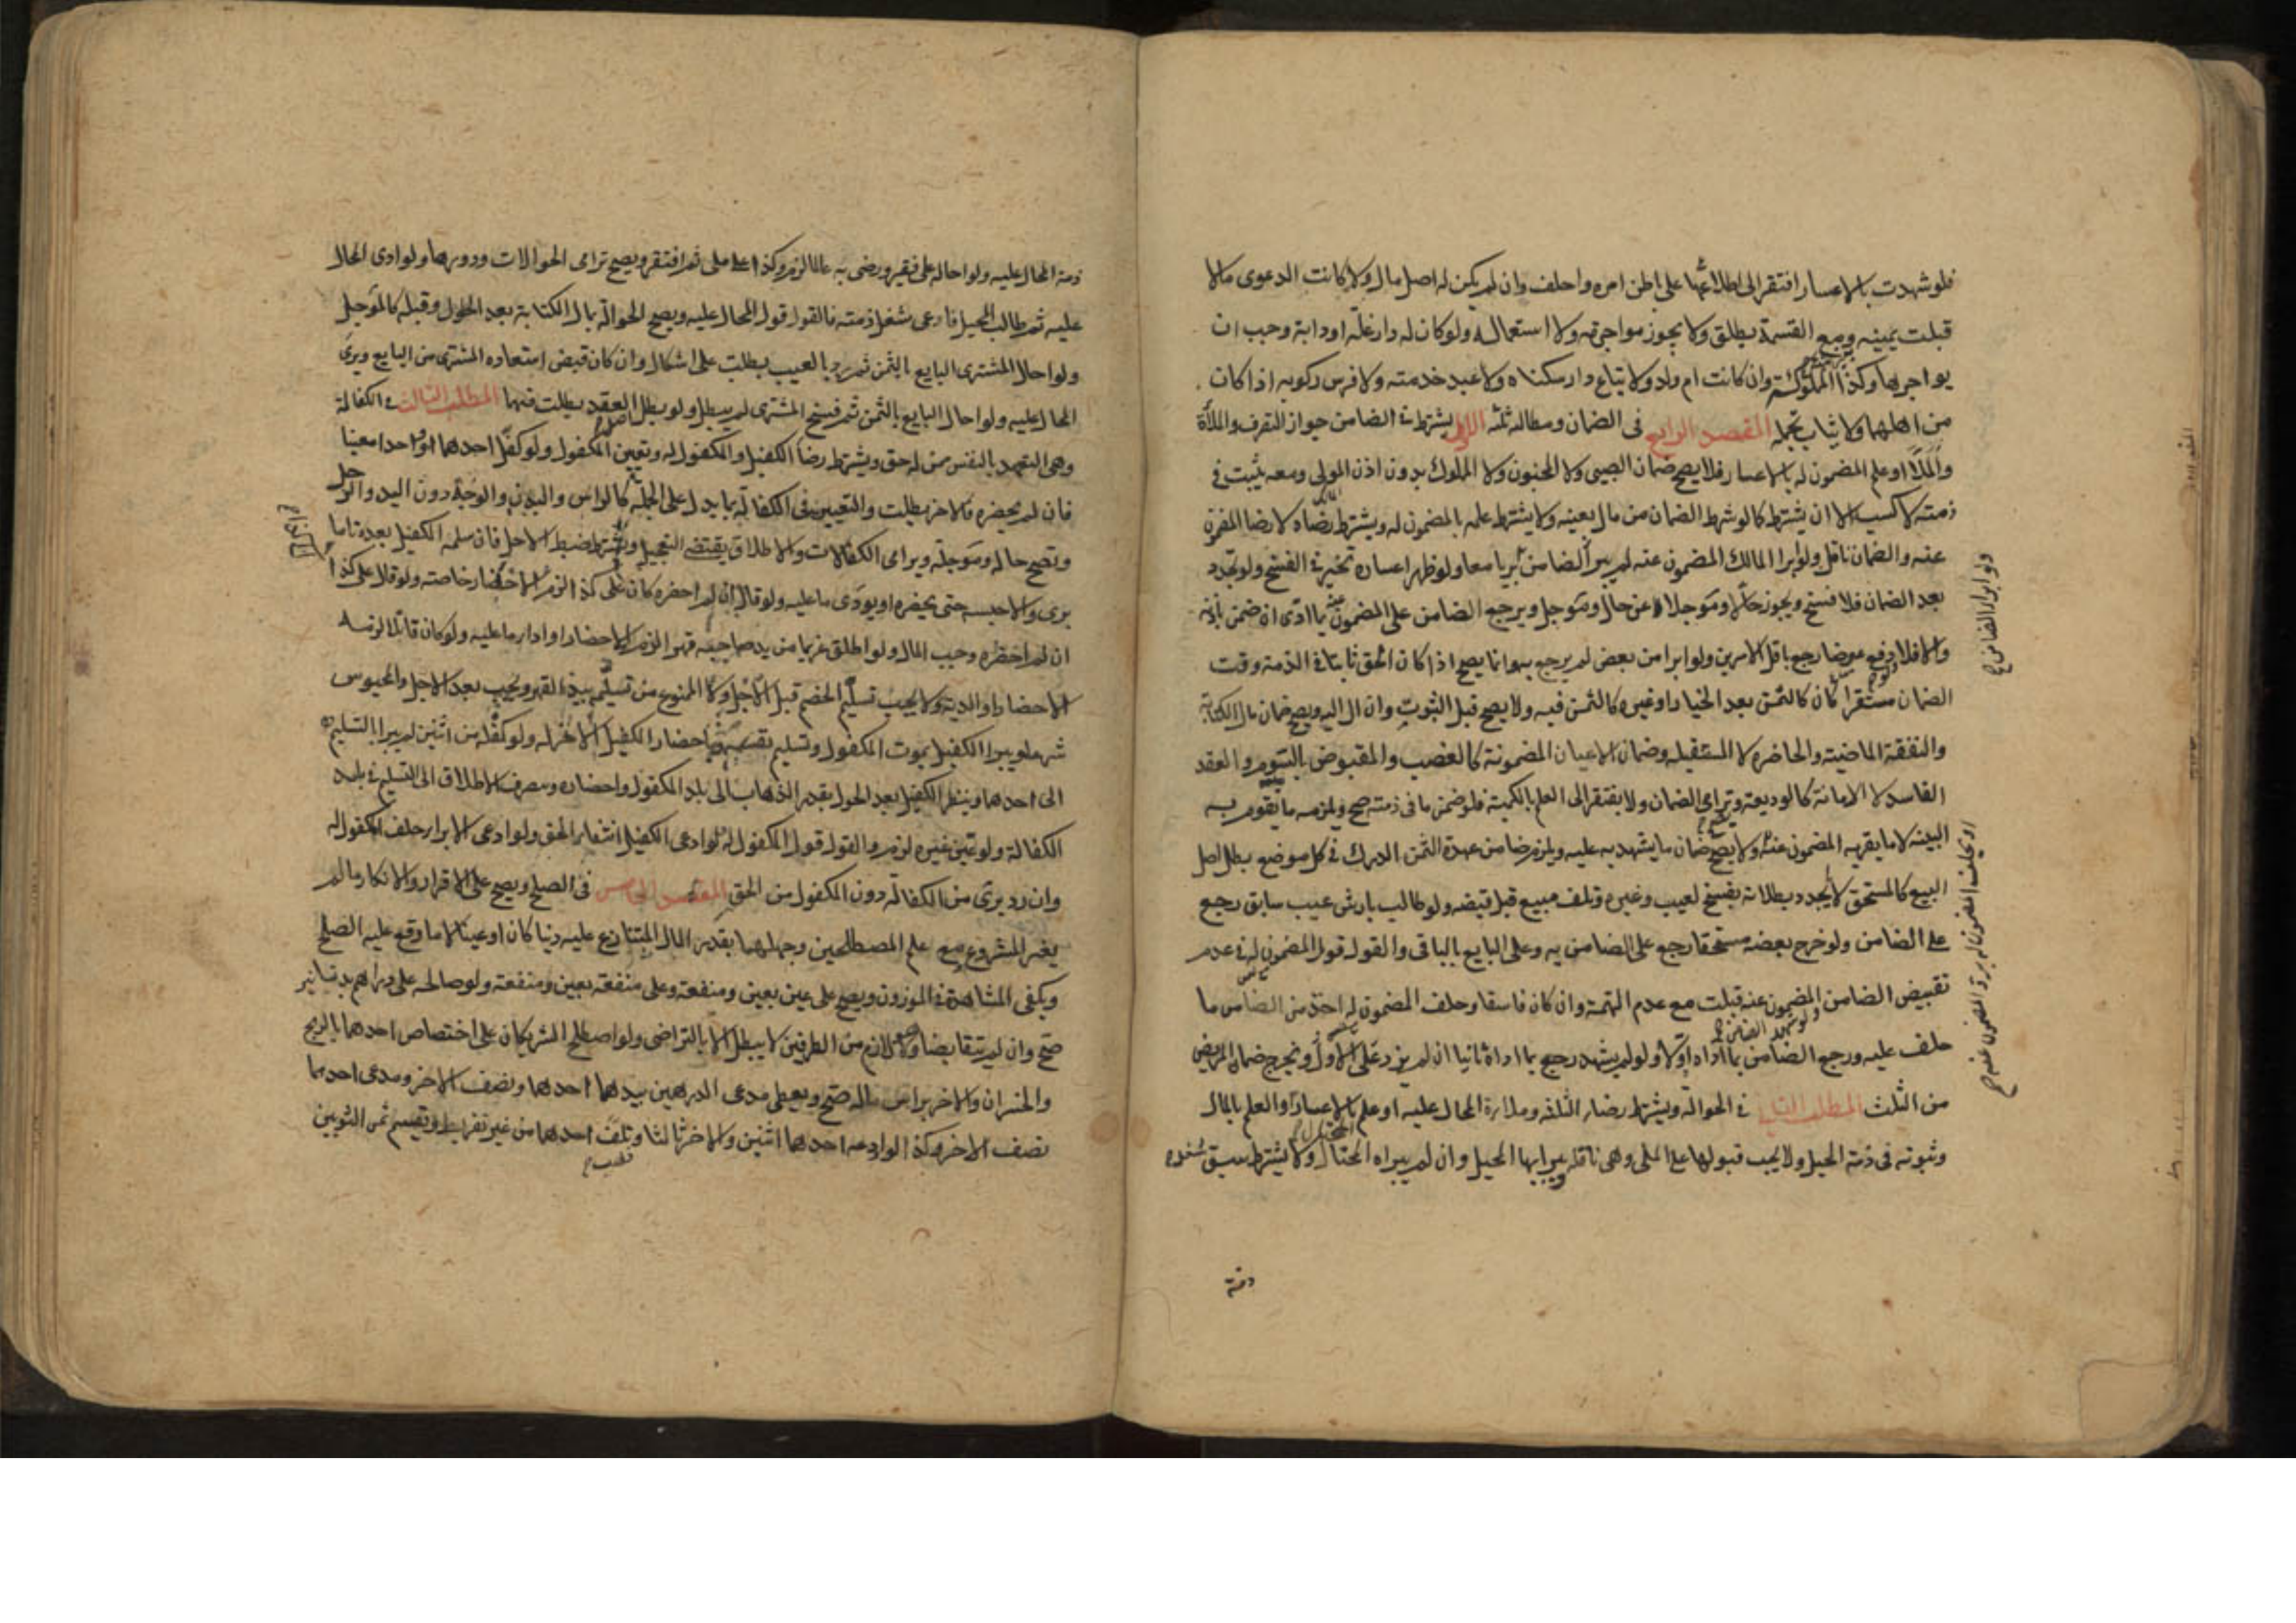 فلو شهدت بالاعسار افتقر الى اطلاعها على باطن امره واحلف وان لم يكن له اصل مال ولا كانت الدعوى مالا
قبلت يمينه ومع القسمة يطلق ولا يجوز مواجرته ولا استعماله ولو كان له دار غلة او دابة وجب ان
يواجرها وكذا المملوكة وان كانت ام ولد ولا يباع دار سكناه ولا عبد خدمته ولا فرس ركوبه اذا كان
من اهلهما ولا ثياب تجمله المقصد الرابع فى الضمان ومطالبه ثلثه الاول يشترط فى الضامن جواز التصرف والملاءة
او علم المضمون له بالاعسار فلا يصح ضمان الصبى ولا المجنون ولا المملوك بدون اذن المولى ومعه يثبت فى
ذمته لا كسبه الا ان يشترط كما لو شرط الضمان من مال بعينه ولا يشترط علمه بالمضمون له ويشترط رضاه لا رضا المضمون
عنه والضمان ناقل ولو ابرا المالك المضمون عنه لم يبرا الضامن ولو ظهر اعساره تخير فى الفسخ ولو تجدد
بعد الضمان فلا فسخ ويجوز حالا ومؤجلا عن حال ومؤجل ويرجع الضامن على المضمون عنه بما ادى ان ضمن باذنه
والا فلا ولو دفع عوضا رجع باقل الامرين ولو ابرا من بعض لم يرجع به وانما يصح اذا كان الحق ثابتا فى الذمة وقت
الضمان مستقرا كان كالثمن بعد الخيار او غيره كالثمن فيه ولا يصح قبل الثبوت وان ال اليه ويصح ضمان مال الكتابة
والنفقة الماضية والحاضرة لا المستقبله وضمان الاعيان المضمونة كالغصب والمقبوض بالسوم والعقد
الفاسد لا الامانة كالوديعة وترامى الضمان ولا يفتقر الى العلم بالكمية فلو ضمن ما فى ذمته صح ويلزمه ما تقوم به
البينة لا ما يقر به المضمون عنه ولا يصح ضمان ما يشهد به عليه ويلزم ضامن عهدة الثمن الدرك فى كل موضع بطل اصل
البيع كالمستحق لا تجدد بطلانه بفسخ لعيب وغيره وتلف مبيع قبل قبضه ولو طالب بارش عيب سابق رجع
على الضامن ولو خرج بعضه مستحقا رجع على الضامن به وعلى البايع بالباقى والقول قول المضمون له فى عدم
تقبيض الضامن ولو شهد المضمون عنه قبلت مع عدم التهمة وان كان فاسقا وحلف المضمون له اخذ من الضامن ما
حلف عليه ورجع الضامن بما اداه اولا ولو لم يشهد رجع بما اداه ثانيا ان لم يزد على الاول ويخرج ضمان المريض
من الثلث المطلب الثانى فى الحوالة ويشترط رضاء الثلثة وملاءة المحال عليه او علم بالاعسار والعلم بالمال
وثبوته فى ذمة المحيل ولا يجب قبولها على الملى وهى ناقلة يبرا بها المحيل وان لم يبراه المحتال ولا يشترط سبق شغل
ذمة
ولو ابرا الضامن
ذمة المحال عليه ولو احاله على فقير ورضى به عالما لزم وكذا على ملى ثم افتقر ويصح ترامى الحوالات ودورها ولو ادى المحال
عليه ثم طالب المحيل فادعى شغل ذمته فالقول قول المحال عليه ويصح الحوالة بمال الكتابة بعد الحلول وقبله كالمؤجل
ولو احال المشترى البايع بالثمن ثم رد بالعيب بطلت على اشكال وان كان قبض استعاده المشترى من البايع وبرى
المحال عليه ولو احال البايع بالثمن ثم فسخ المشترى لم يبطل ولو بطل اصل العقد بطلت فيهما المطلب الثالث فى الكفالة
وهى التعهد بالنفس ممن له حق ويشترط رضا الكفيل والمكفول له وتعيين المكفول ولو كفل احدهما او واحدا معينا
فان لم يحضره فالاخر بطلت والتعيين فى الكفالة بما يدل على الجملة كالراس والبدن والوجه دون اليد والرجل
وتصح حالة ومؤجلة وترامى الكفالات والاطلاق يقتضى التعجيل ويشترط ضبط الاجل فان سلمه الكفيل بعده تاما
برى والا حبسه حتى يحضره او يؤدى ما عليه ولو قال ان لم احضره كان على كذا لزم الاحضار خاصة ولو قال على كذا
ان لم احضره وجب المال ولو اطلق غريما من يد صاحبه قهرا لزم الاحضار او اداء ما عليه ولو كان قاتلا لزمه
الاحضار او الدية ولا يجب تسلم الخصم قبل الاجل ولا الممنوع من تسلمه بيد القهر ويجب بعد الاجل والمحبوس
شرعا ويبرا الكفيل بموت المكفول وتسليم نفسه وباحضار الكفيل الاخر له ولو كفله من اثنين لم يبرا بالتسليم
الى احدهما وينظر الكفيل بعد الحول بقدر الذهاب الى بلد المكفول واحضاره وينصرف الاطلاق الى التسليم فى بلد
الكفالة ولو عين غيره لزم والقول قول المكفول له لو ادعى الكفيل انتفاء الحق ولو ادعى الابراء حلف المكفول له
وان رد برى من الكفالة دون المكفول من الحق المقصد الخامس فى الصلح ويصح على الاقرار والانكار ما لم
يغير المشروع مع علم المصطلحين وجهلهما بقدر المال المتنازع عليه دينا كان او عينا لا ما وقع عليه الصلح
ويكفى المشاهدة فى الموزون ويصح على عين بعين ومنفعة وعلى منفعة بعين ومنفعة ولو صالحه على دراهم بدنانير
صح وان لم يتقابضا وهو لازم من الطرفين لا يبطل الا بالتراضى ولو اصطلح الشريكان على اختصاص احدهما بالربح
والخسران والاخر براس ماله صح ويعطى مدعى الدرهمين بيدهما احدهما ونصف الاخر ومدعى احدهما
نصف الاخر وكذا لو اودعه احدهما اثنين والاخر ثالثا وتلف احدهما من غير تفريط ويقسم ثمن الثوبين